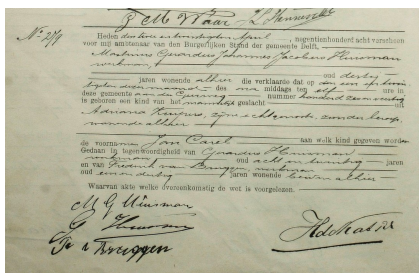 J M Waar
No. 279
Heden den twee en twintigsten April negentienhonderd acht verscheen
voor mij ambtenaar van den Burgerlijken Stand der gemeente Delft,
Martinus Gerardus Johannes Jacobus Huisman
werkman, oud dertig
jaren wonende alhier die verklaarde dat op den een en twin
tigsten dezer maand des na middags ten elf ure in
deze gemeente aan de nummer honderd zeven
is geboren een kind van het mannelijk geslacht uit
Adriana zijne echtgenoote, zonder beroep,
wonende alhier
de voornamen Jan Carel aan welk kind gegeven worden
Gedaan in tegenwoordigheid van Gerardus Huisman
werkman oud acht en twintig jaren
en van Frederik van Bruggen, werkman
oud een en dertig jaren wonende beiden alhier
Waarvan akte welke overeenkomstig de wet is voorgelezen.
M G Huisman
G Huisman
Fr v Bruggen